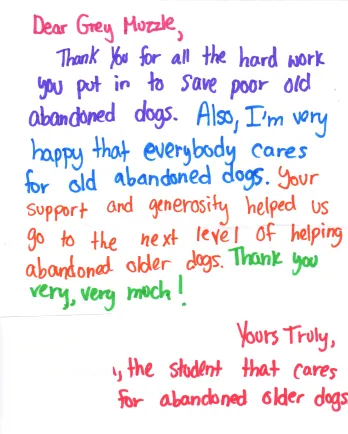 Dear Grey Muzzle,
Thank You for all the hard work
you put in to save poor old
abandoned dogs. Also, I'm very
happy that everybody cares
for old abandoned dogs. Your
support and generosity helped us
go to the next level of helping
abandoned older dogs. Thank you
very, very much!
Yours Truly,
, the student that cares
for abandoned older dogs